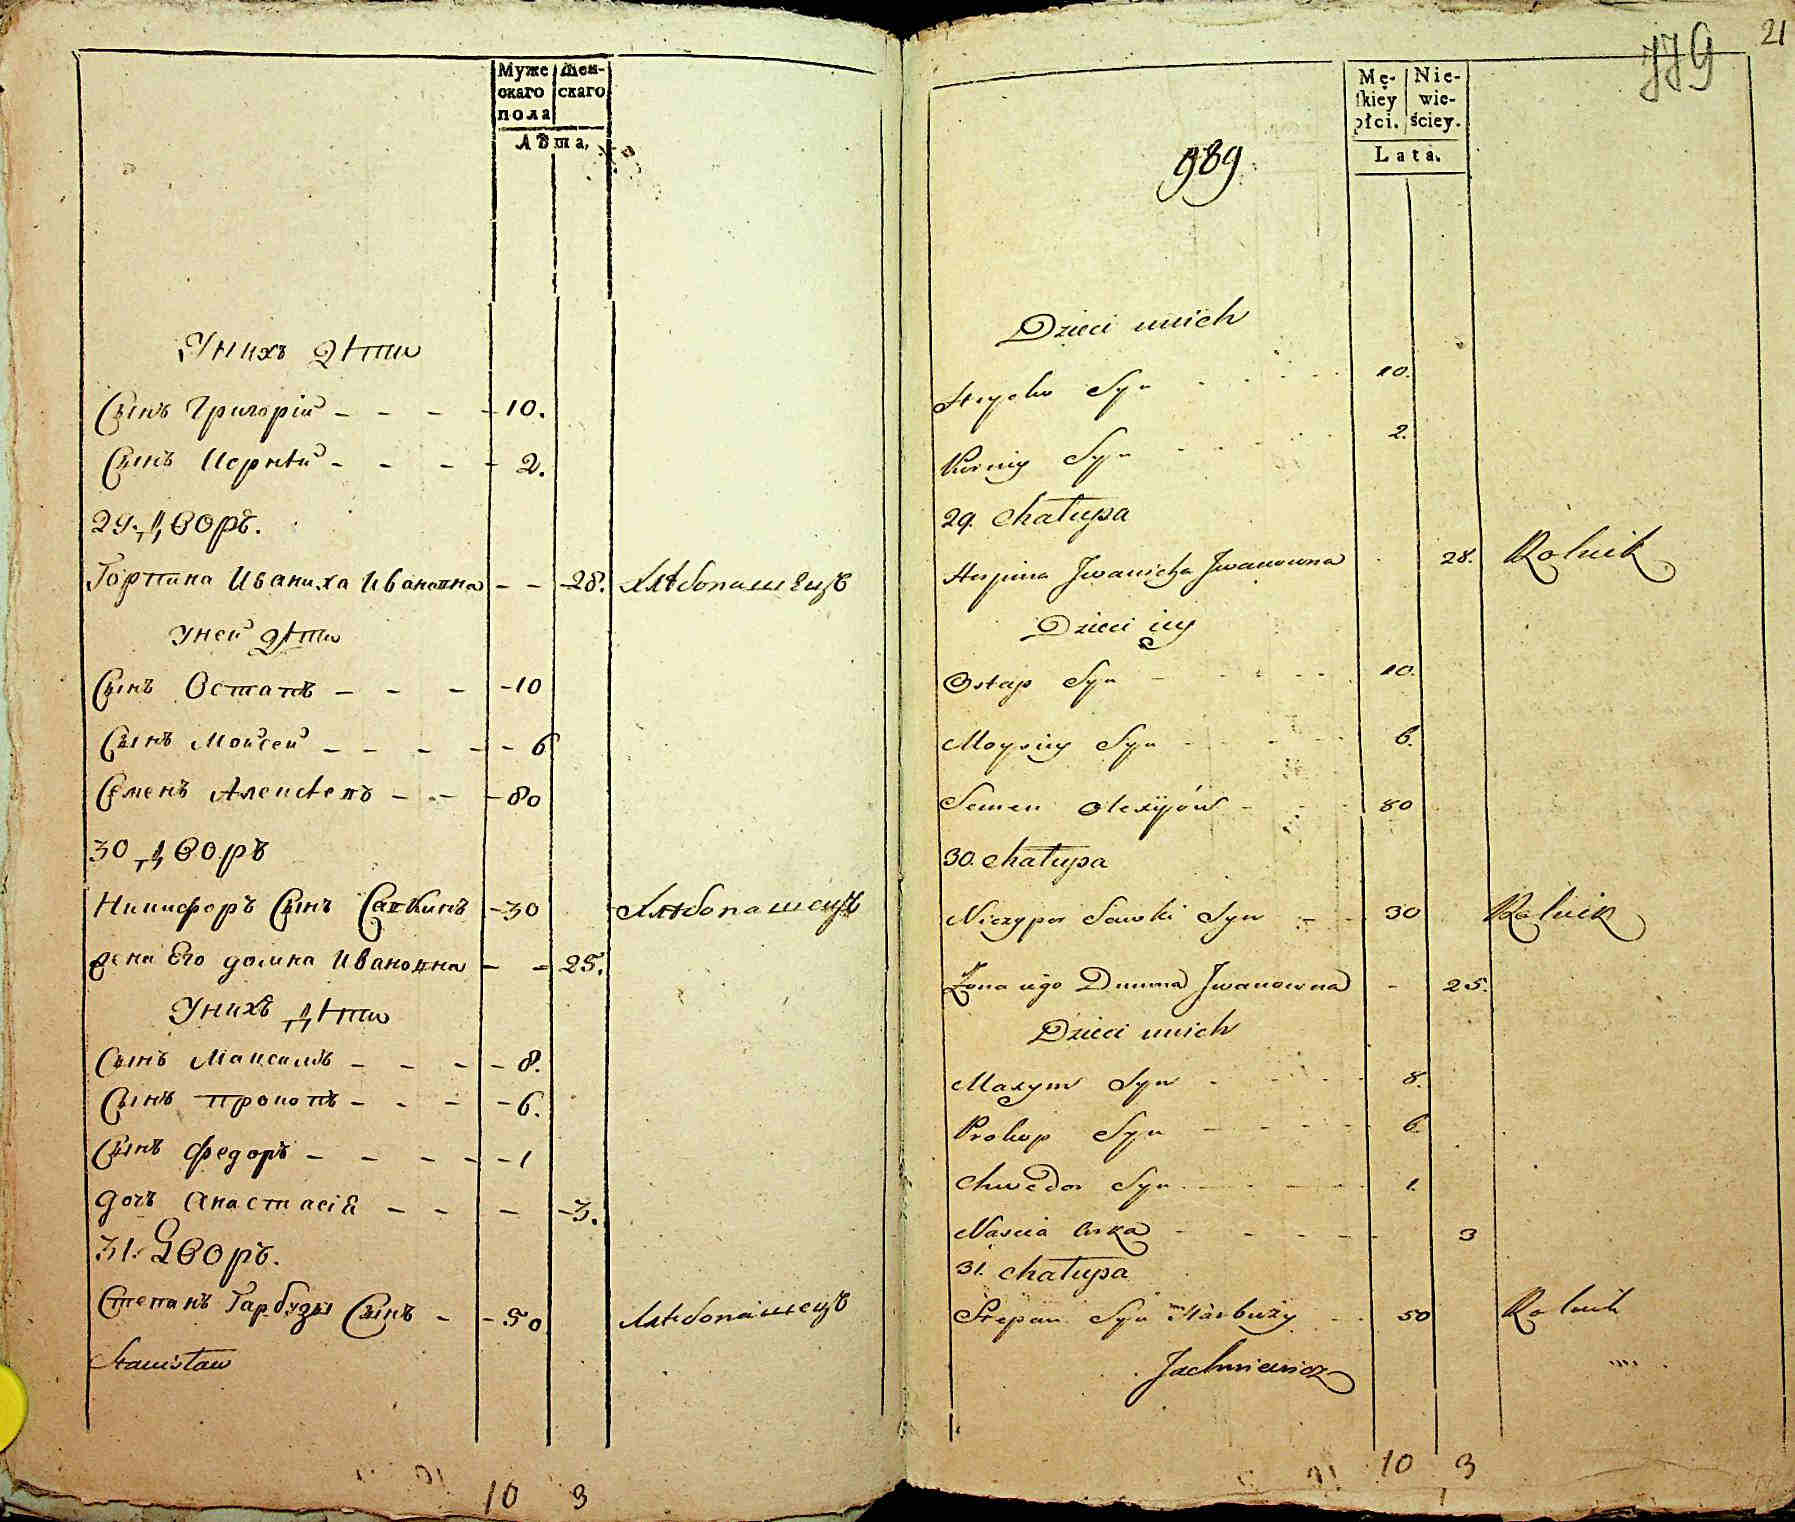 Муже
скаго
пола
Жен-
скаго
Лѣта,
Унихъ Дѣти
Сынъ Григорій - - - - 10.
Сынъ Корнѣй - - - - 2.
29. Дворъ.
Горпина Иваниха Ивановна - - 28. Хлѣбопашецъ
Уней Дѣти
Сынъ Остапъ - - - 10
Сынъ Мойсей - - - - 6
Семенъ Алексѣевъ - - - 80
30 Дворъ
Никифоръ Сынъ Савкинъ - 30 Хлѣбопашецъ
жена Его домна Ивановна - - 25.
Унихъ Дѣти
Сынъ Максимъ - - - - 8.
Сынъ Прокопъ - - - - 6.
Сынъ Федоръ - - - - 1
дочь Анастасія - - - - 3.
31. Дворъ.
Степанъ Гарбузы Сынъ - - 50 Хлѣбопашецъ
Stanisław
10 3
21
779
989
Mę-
skiey
płci.
Nie-
wie-
ściey.
Lata.
Dzieci unich
Hryćko Syn - - - - 10.
Korniy Syn - - - - 2.
29. Chałupa
Horpina Jwanicha Jwanowna - 28. Rolnik
Dzieci iey
Ostap Syn - - - - 10.
Moysiey Syn - - - - 6.
Semen Olexijów - - - 80
30. Chałupa
Niczypor Sawki Syn - - 30 Rolnik
Żona iego Dumna Jwanowna - 25.
Dzieci unich
Maxym Syn - - - - 8.
Prokop Syn - - - - 6.
Chwedor Syn - - - - 1.
Nascia Curka - - - - 3
31. Chałupa
Stepan Syn Harbuzy - - 50 Rolnik
Jachniewicz
10 3